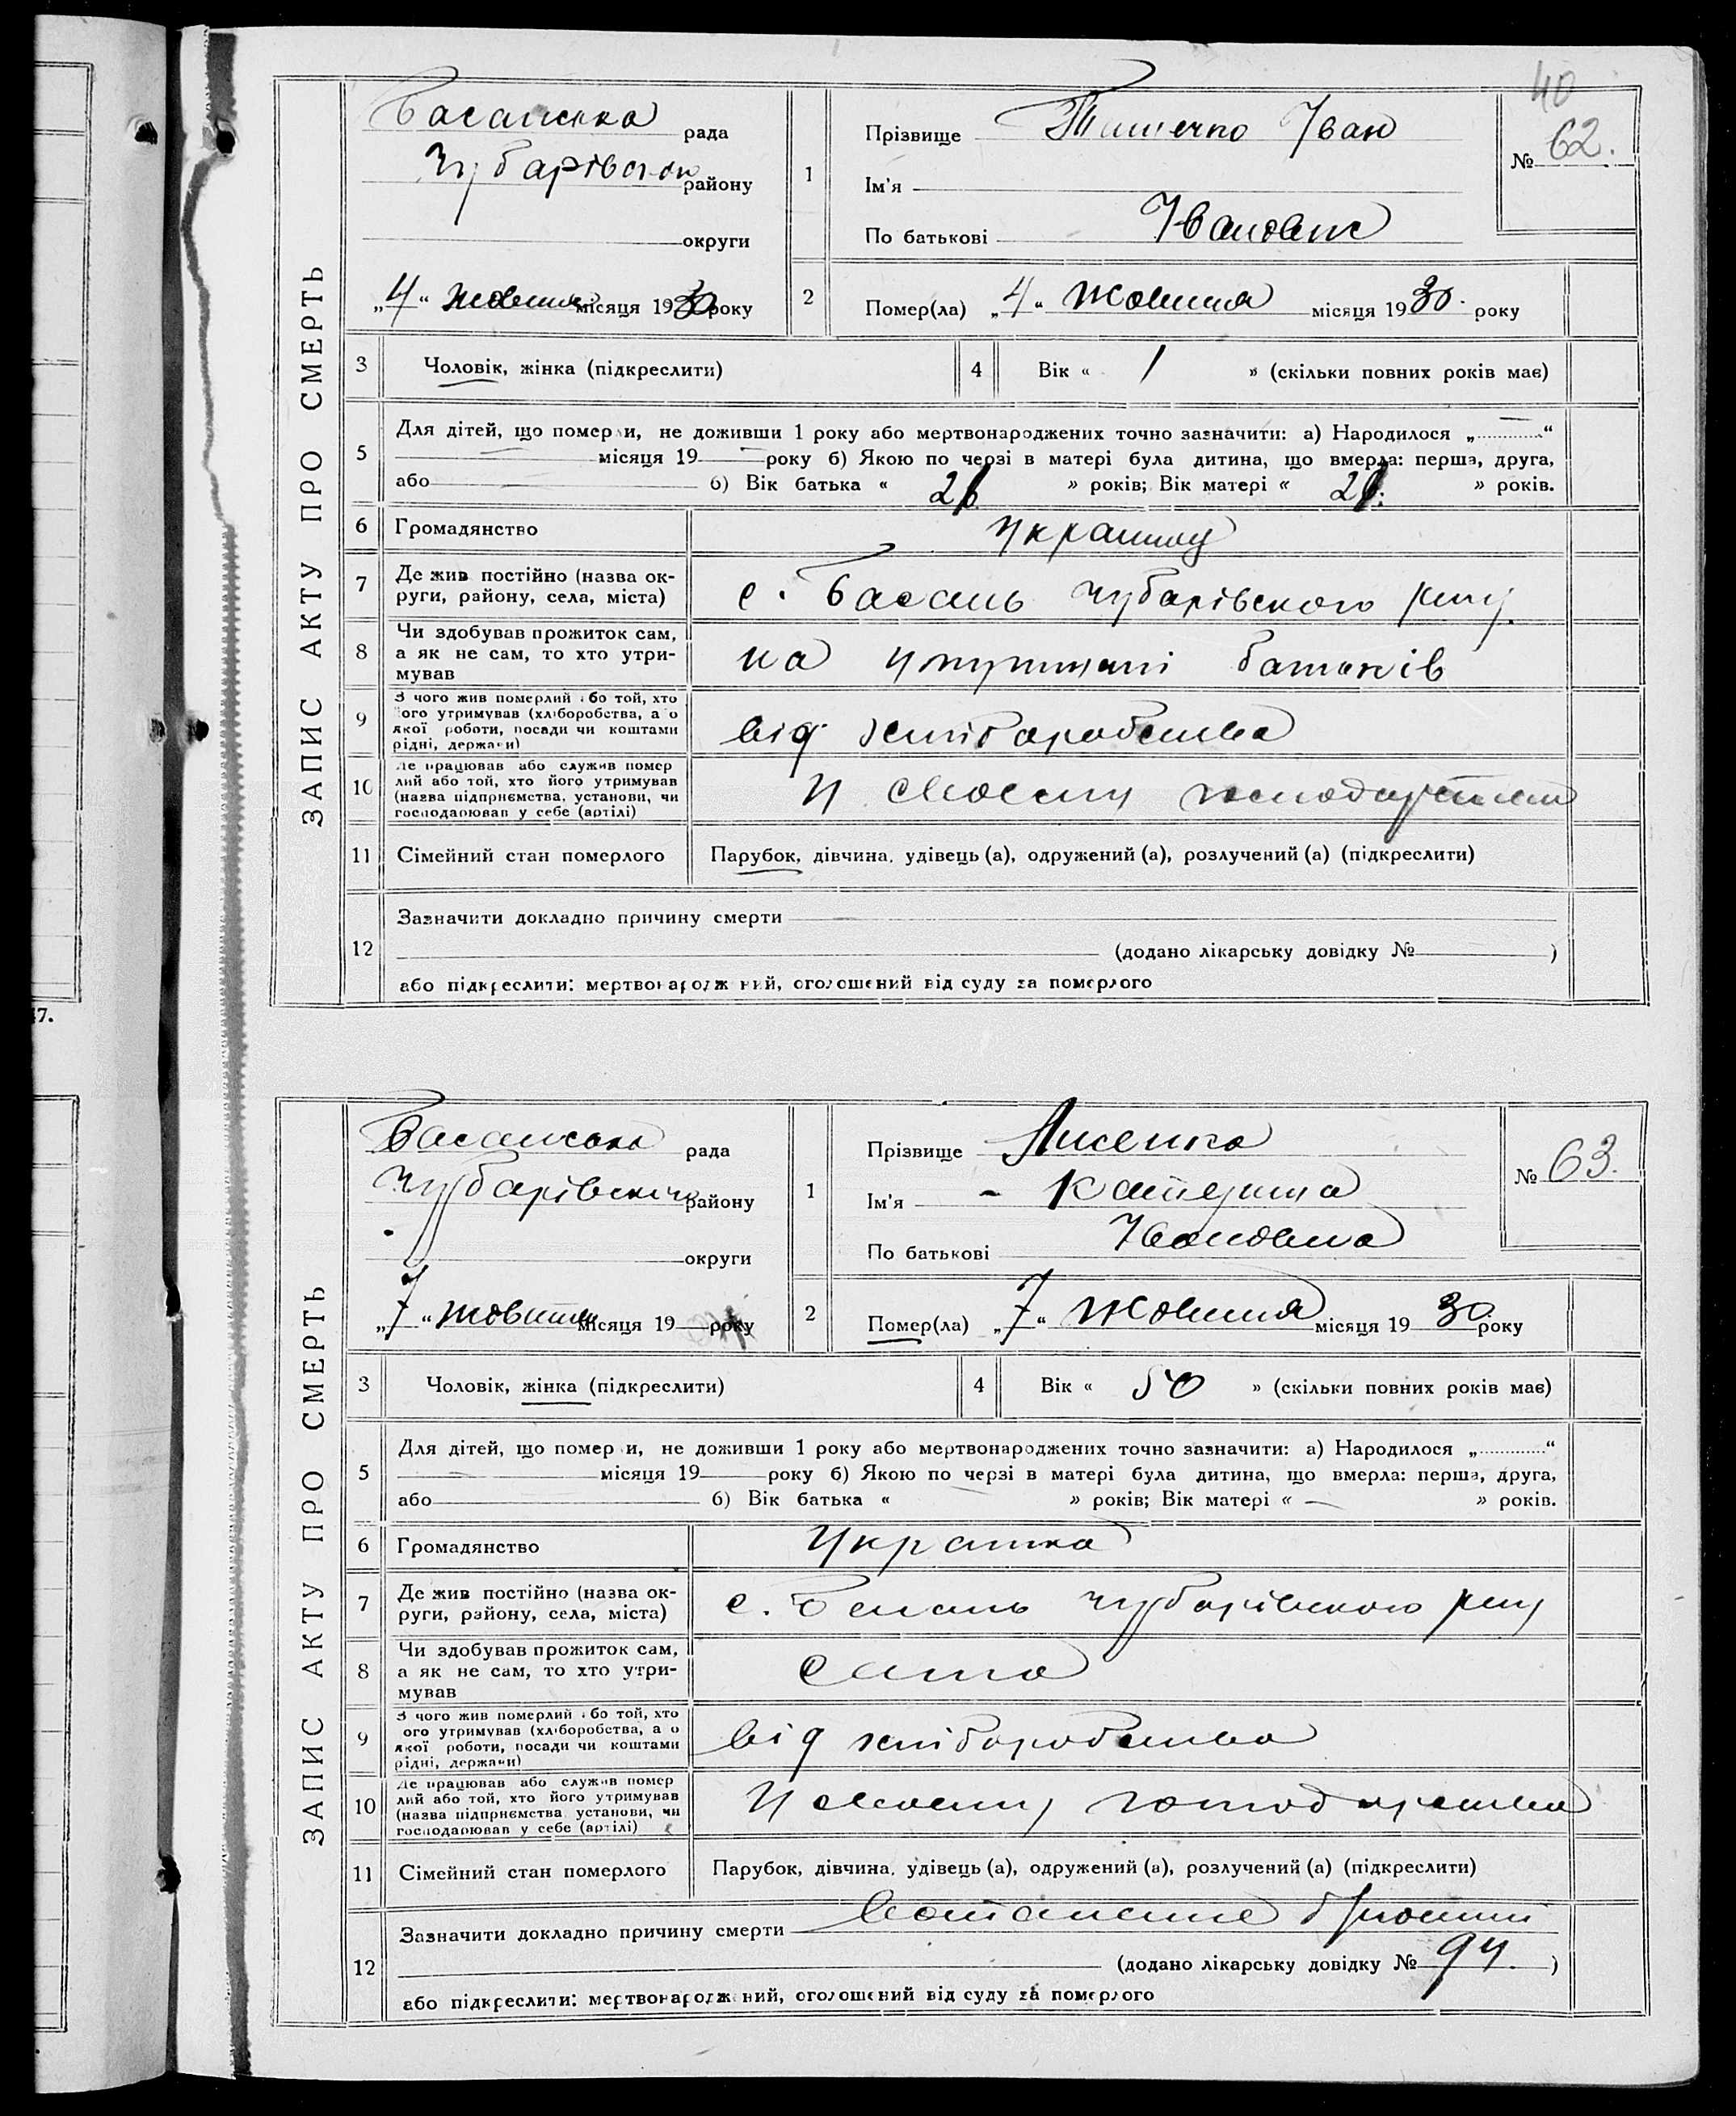 40
ЗАПИС АКТУ ПРО СМЕРТЬ
Басанська рада
Чубарівськ району
округи
„4“ жовтня місяця 1930 року
1
Прізвище Іван
Ім'я
По батькові Іванович
№ 62.
2
Помер(ла) „4“ Жовтня місяця 1930. року
3 Чоловік, жінка (підкреслити)
4 Вік « 1 » (скільки повних років має)
5
Для дітей, що померли, не доживши 1 року або мертвонароджених точно зазначити: а) Народилося „ “
місяця 19 року б) Якою по черзі в матері була дитина, що вмерла: перша, друга,
або 6) Вік батька « » років; Вік матері « » років.
6 Громадянство
7 Де жив постійно (назва ок-
руги, району, села, міста) с. Басань чубарівського р-ну
8 Чи здобував прожиток сам,
а як не сам, то хто утри-
мував на утриманні батьків
9 З чого жив померлий або той, хто
ого утримував (хліборобства, а о
якої роботи, посади чи коштами
рідні, держави) від хліборобства
10 Де працював або служив помер
лий або той, хто його утримував
(назва підприємства, установи, чи
господарював у себе (артілі) У своєму господарстві
11 Сімейний стан померлого Парубок, дівчина, удівець (а), одружений (а), розлучений (а) (підкреслити)
12 Зазначити докладно причину смерти
(додано лікарську довідку № )
або підкреслити: мертвонароджений, оголошений від суду за померлого
47.
ЗАПИС АКТУ ПРО СМЕРТЬ
Басанська рада
Чубарівського району
округи
„7“ жовтня місяця 19 року
1
Прізвище Лисенко
Ім'я - Катерина
По батькові Івановна
№ 63.
2
Помер(ла) „7“ Жовтня місяця 1930 року
3 Чоловік, жінка (підкреслити)
4 Вік « 50 » (скільки повних років має)
5
Для дітей, що помер и, не доживши 1 року або мертвонароджених точно зазначити: а) Народилося „ “
місяця 19 року б) Якою по черзі в матері була дитина, що вмерла: перша, друга,
або 6) Вік батька « » років; Вік матері « — » років.
6 Громадянство Українка
7 Де жив постійно (назва ок-
руги, району, села, міста) с. Басань чубарівського р-ну
8 Чи здобував прожиток сам,
а як не сам, то хто утри-
мував сама
9 З чого жив померлий або той, хто
ого утримував (хліборобства, а о
якої роботи, посади чи коштами
рідні, держави) від хліборобства
10 Де працював або служив помер
лий або той, хто його утримував
(назва підприємства, установи, чи
господарював у себе (артілі) У своєму господарстві
11 Сімейний стан померлого Парубок, дівчина, удівець (а), одружений (а), розлучений (а) (підкреслити)
12 Зазначити докладно причину смерти
(додано лікарську довідку № 94. )
або підкреслити: мертвонароджений, оголошений від суду за померлого